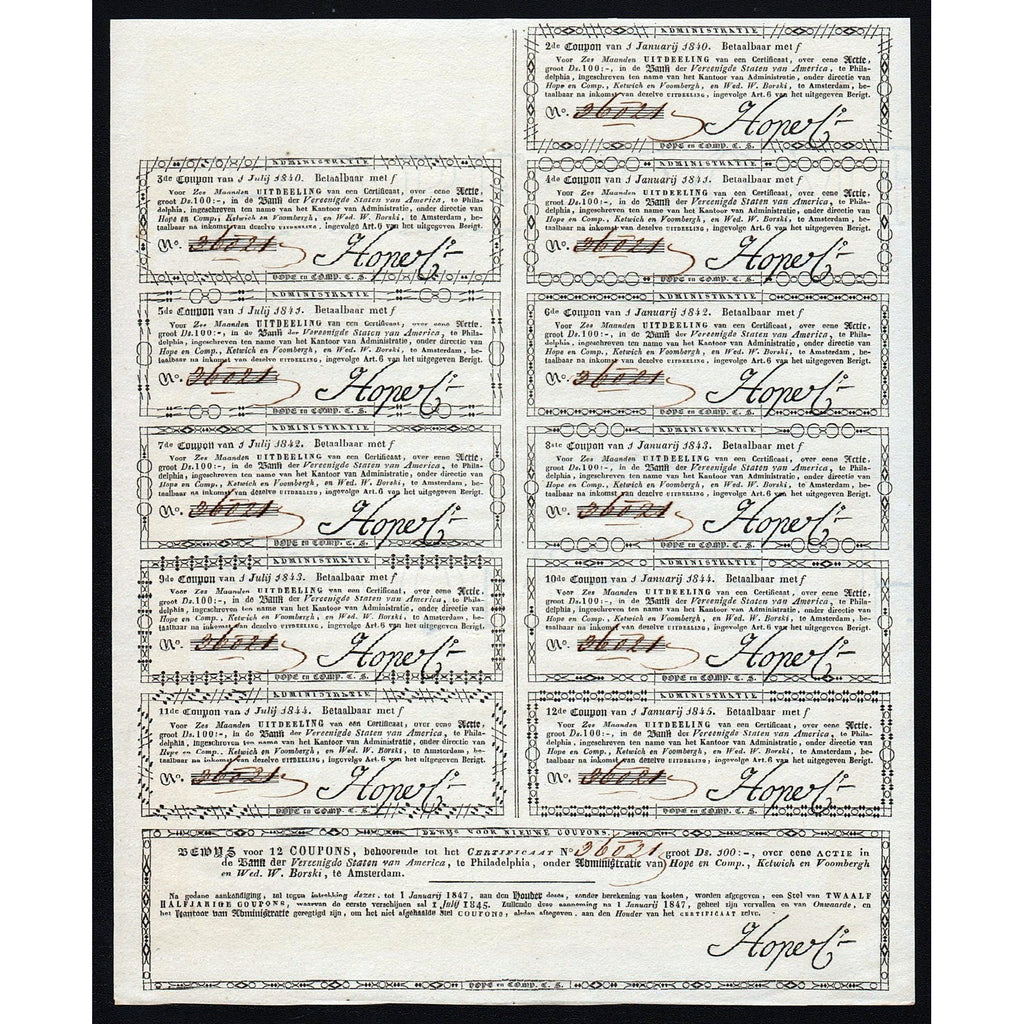 ADMINISTRATIE
2de Coupon van 1 Januarij 1840. Betaalbaar met f
Voor Zes Maanden UITDEELING van een Certificaat, over eene Actie,
groot Ds. 100:-, in de Bank der Vereenigde Staten van America, te Phila-
delphia, ingeschreven ten name van het Kantoor van Administratie, onder directie van
Hope en Comp., Ketwich en Voombergh, en Wed. W. Borski, te Amsterdam, be-
taalbaar na inkomst van dezelve UITDEELING, ingevolge Art. 6 van het uitgegeven Berigt.
No. 26021 Hope & Co.
HOPE en COMP. C. S.
ADMINISTRATIE
3de Coupon van 1 Julij 1840. Betaalbaar met f
Voor Zes Maanden UITDEELING van een Certificaat, over eene Actie,
groot Ds. 100:-, in de Bank der Vereenigde Staten van America, te Phila-
delphia, ingeschreven ten name van het Kantoor van Administratie, onder directie van
Hope en Comp., Ketwich en Voombergh, en Wed. W. Borski, te Amsterdam, be-
taalbaar na inkomst van dezelve UITDEELING, ingevolge Art. 6 van het uitgegeven Berigt.
No. 26021 Hope & Co.
HOPE en COMP. C. S.
ADMINISTRATIE
4de Coupon van 1 Januarij 1841. Betaalbaar met f
Voor Zes Maanden UITDEELING van een Certificaat, over eene Actie,
groot Ds. 100:-, in de Bank der Vereenigde Staten van America, te Phila-
delphia, ingeschreven ten name van het Kantoor van Administratie, onder directie van
Hope en Comp., Ketwich en Voombergh, en Wed. W. Borski, te Amsterdam, be-
taalbaar na inkomst van dezelve UITDEELING, ingevolge Art. 6 van het uitgegeven Berigt.
No. 26021 Hope & Co.
HOPE en COMP. C. S.
ADMINISTRATIE
5de Coupon van 1 Julij 1841. Betaalbaar met f
Voor Zes Maanden UITDEELING van een Certificaat, over eene Actie,
groot Ds. 100:-, in de Bank der Vereenigde Staten van America, te Phila-
delphia, ingeschreven ten name van het Kantoor van Administratie, onder directie van
Hope en Comp., Ketwich en Voombergh, en Wed. W. Borski, te Amsterdam, be-
taalbaar na inkomst van dezelve UITDEELING, ingevolge Art. 6 van het uitgegeven Berigt.
No. 26021 Hope & Co.
HOPE en COMP. C. S.
ADMINISTRATIE
6de Coupon van 1 Januarij 1842. Betaalbaar met f
Voor Zes Maanden UITDEELING van een Certificaat, over eene Actie,
groot Ds. 100:-, in de Bank der Vereenigde Staten van America, te Phila-
delphia, ingeschreven ten name van het Kantoor van Administratie, onder directie van
Hope en Comp., Ketwich en Voombergh, en Wed. W. Borski, te Amsterdam, be-
taalbaar na inkomst van dezelve UITDEELING, ingevolge Art. 6 van het uitgegeven Berigt.
No. 26021 Hope & Co.
HOPE en COMP. C. S.
ADMINISTRATIE
7de Coupon van 1 Julij 1842. Betaalbaar met f
Voor Zes Maanden UITDEELING van een Certificaat, over eene Actie,
groot Ds. 100:-, in de Bank der Vereenigde Staten van America, te Phila-
delphia, ingeschreven ten name van het Kantoor van Administratie, onder directie van
Hope en Comp., Ketwich en Voombergh, en Wed. W. Borski, te Amsterdam, be-
taalbaar na inkomst van dezelve UITDEELING, ingevolge Art. 6 van het uitgegeven Berigt.
No. 26021 Hope & Co.
HOPE en COMP. C. S.
ADMINISTRATIE
8ste Coupon van 1 Januarij 1843. Betaalbaar met f
Voor Zes Maanden UITDEELING van een Certificaat, over eene Actie,
groot Ds. 100:-, in de Bank der Vereenigde Staten van America, te Phila-
delphia, ingeschreven ten name van het Kantoor van Administratie, onder directie van
Hope en Comp., Ketwich en Voombergh, en Wed. W. Borski, te Amsterdam, be-
taalbaar na inkomst van dezelve UITDEELING, ingevolge Art. 6 van het uitgegeven Berigt.
No. 26021 Hope & Co.
HOPE en COMP. C. S.
ADMINISTRATIE
9de Coupon van 1 Julij 1843. Betaalbaar met f
Voor Zes Maanden UITDEELING van een Certificaat, over eene Actie,
groot Ds. 100:-, in de Bank der Vereenigde Staten van America, te Phila-
delphia, ingeschreven ten name van het Kantoor van Administratie, onder directie van
Hope en Comp., Ketwich en Voombergh, en Wed. W. Borski, te Amsterdam, be-
taalbaar na inkomst van dezelve UITDEELING, ingevolge Art. 6 van het uitgegeven Berigt.
No. 26021 Hope & Co.
HOPE en COMP. C. S.
ADMINISTRATIE
10de Coupon van 1 Januarij 1844. Betaalbaar met f
Voor Zes Maanden UITDEELING van een Certificaat, over eene Actie,
groot Ds. 100:-, in de Bank der Vereenigde Staten van America, te Phila-
delphia, ingeschreven ten name van het Kantoor van Administratie, onder directie van
Hope en Comp., Ketwich en Voombergh, en Wed. W. Borski, te Amsterdam, be-
taalbaar na inkomst van dezelve UITDEELING, ingevolge Art. 6 van het uitgegeven Berigt.
No. 26021 Hope & Co.
HOPE en COMP. C. S.
ADMINISTRATIE
11de Coupon van 1 Julij 1844. Betaalbaar met f
Voor Zes Maanden UITDEELING van een Certificaat, over eene Actie,
groot Ds. 100:-, in de Bank der Vereenigde Staten van America, te Phila-
delphia, ingeschreven ten name van het Kantoor van Administratie, onder directie van
Hope en Comp., Ketwich en Voombergh, en Wed. W. Borski, te Amsterdam, be-
taalbaar na inkomst van dezelve UITDEELING, ingevolge Art. 6 van het uitgegeven Berigt.
No. 26021 Hope & Co.
HOPE en COMP. C. S.
ADMINISTRATIE
12de Coupon van 1 Januarij 1845. Betaalbaar met f
Voor Zes Maanden UITDEELING van een Certificaat, over eene Actie,
groot Ds. 100:-, in de Bank der Vereenigde Staten van America, te Phila-
delphia, ingeschreven ten name van het Kantoor van Administratie, onder directie van
Hope en Comp., Ketwich en Voombergh, en Wed. W. Borski, te Amsterdam, be-
taalbaar na inkomst van dezelve UITDEELING, ingevolge Art. 6 van het uitgegeven Berigt.
No. 26021 Hope & Co.
HOPE en COMP. C. S.
BEWIJS VOOR NIEUWE COUPONS.
BEWIJS voor 12 COUPONS, behoorende tot het CERTIFICAAT No 26021 groot Ds. 100:-, over eene ACTIE in
de Bank der Vereenigde Staten van America, te Philadelphia, onder Administratie van Hope en Comp., Ketwich en Voombergh
en Wed. W. Borski, te Amsterdam.
Na gedane aankondiging, zal tegen intrekking dezes, tot 1 Januarij 1847, aan den Houder dezes, zonder berekening van kosten, worden afgegeven, een Stel van TWAALF
HALFJARIGE COUPONS, waarvan de eerste verschijnen zal 1 Julij 1845. Zullende deze aanneming na 1 Januarij 1847, geheel zijn vervallen en van Onwaarde, en
het Kantoor van Administratie geregtigd zijn, om het niet afgehaalde Stel COUPONS, alsdan aftegeven, aan den Houder van het CERTIFICAAT zelve.
Hope & Co.
HOPE en COMP. C. S.